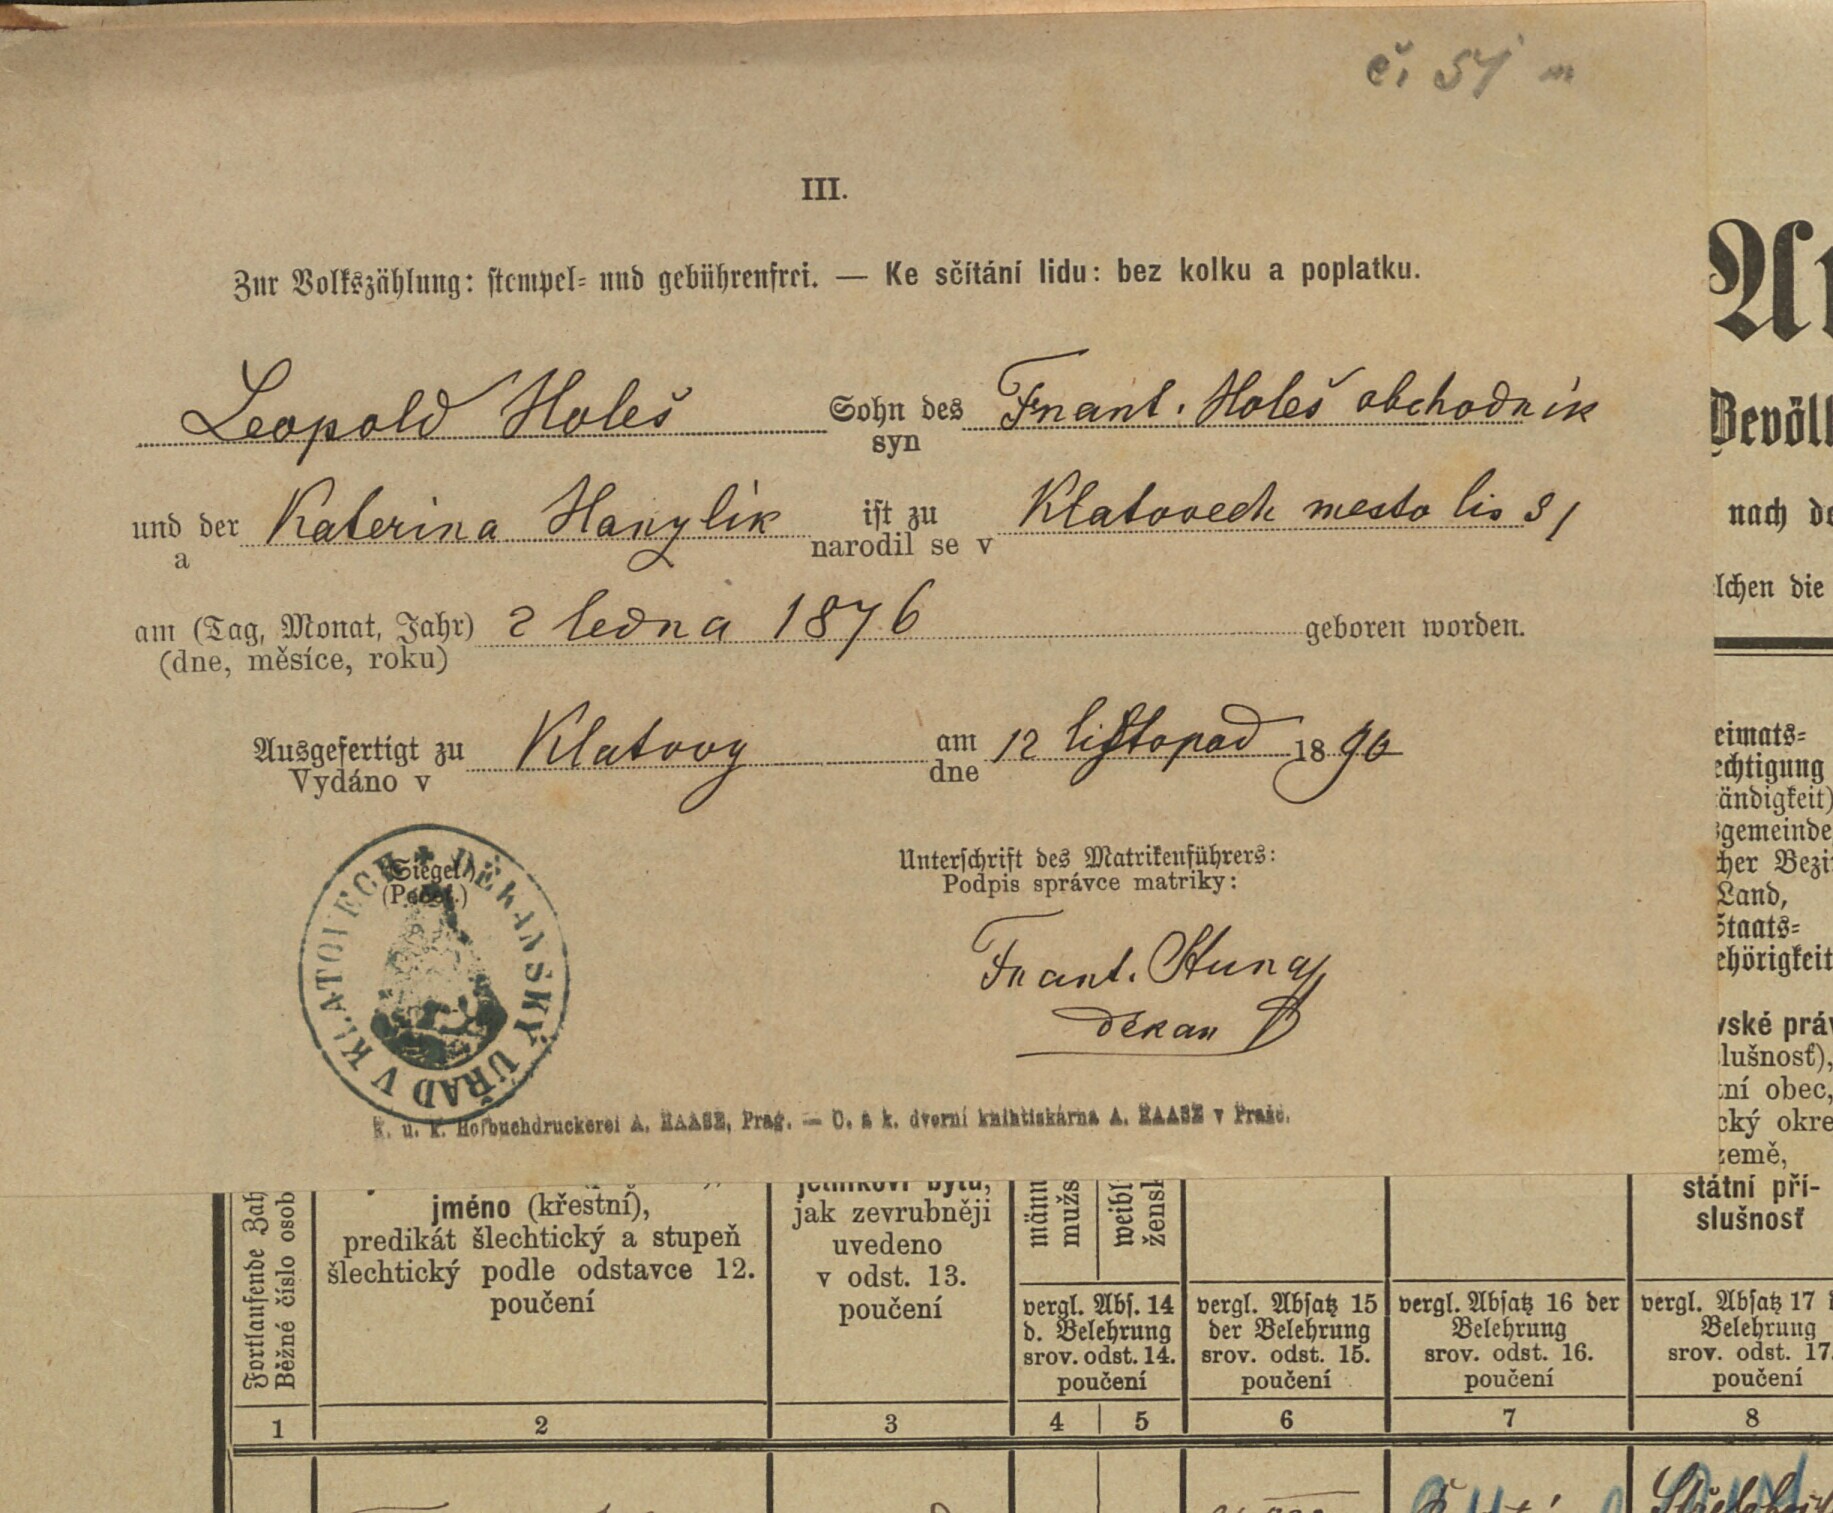 č. 51 m
III.
Zur Volkszählung: stempel- und gebührenfrei. — Ke sčítání lidu: bez kolku a poplatku.
Leopold Holeš Sohn des Frant. Holeš obchodnik
syn
und der Katerina Hanzlik ist zu Klatovech mesto lis 31
a narodil se v
am (Tag, Monat, Jahr) 2 ledna 1876 geboren worden.
(dne, měsíce, roku)
Ausgefertigt zu Klatovy am 12 listopad 1890
Vydáno v dne
Siegel)
(Pečeť.)
DĚKANSKÝ ÚŘAD V KLATOVECH
Unterschrift des Matrikenführers:
Podpis správce matriky:
Frant.
děkan
K. u. k. Hofbuchdruckerei A. HAASE, Prag. — C. a k. dvorní knihtiskárna A. HAASE v Praze.
Bevöl
nach de
lchen die
eimats-
echtigung
ändigkeit)
gemeinde
cher Bezi
Land,
Staats-
ehörigkeit
vské práv
lušnosť),
ní obec,
cký okre
země,
státní pří-
slušnosť
Fortlaufende Zah
Běžné číslo osob
jméno (křestní),
predikát šlechtický a stupeň
šlechtický podle odstavce 12.
poučení
jetníkovi bytu,
jak zevrubněji
uvedeno
v odst. 13.
poučení
männ
mužs
weibl
žensk
vergl. Abs. 14
d. Belehrung
srov. odst. 14.
poučení
vergl. Absatz 15
der Belehrung
srov. odst. 15.
poučení
vergl. Absatz 16 der
Belehrung
srov. odst. 16.
poučení
vergl. Absatz 17
Belehrung
srov. odst. 17.
poučení
1 2 3 4 5 6 7 8